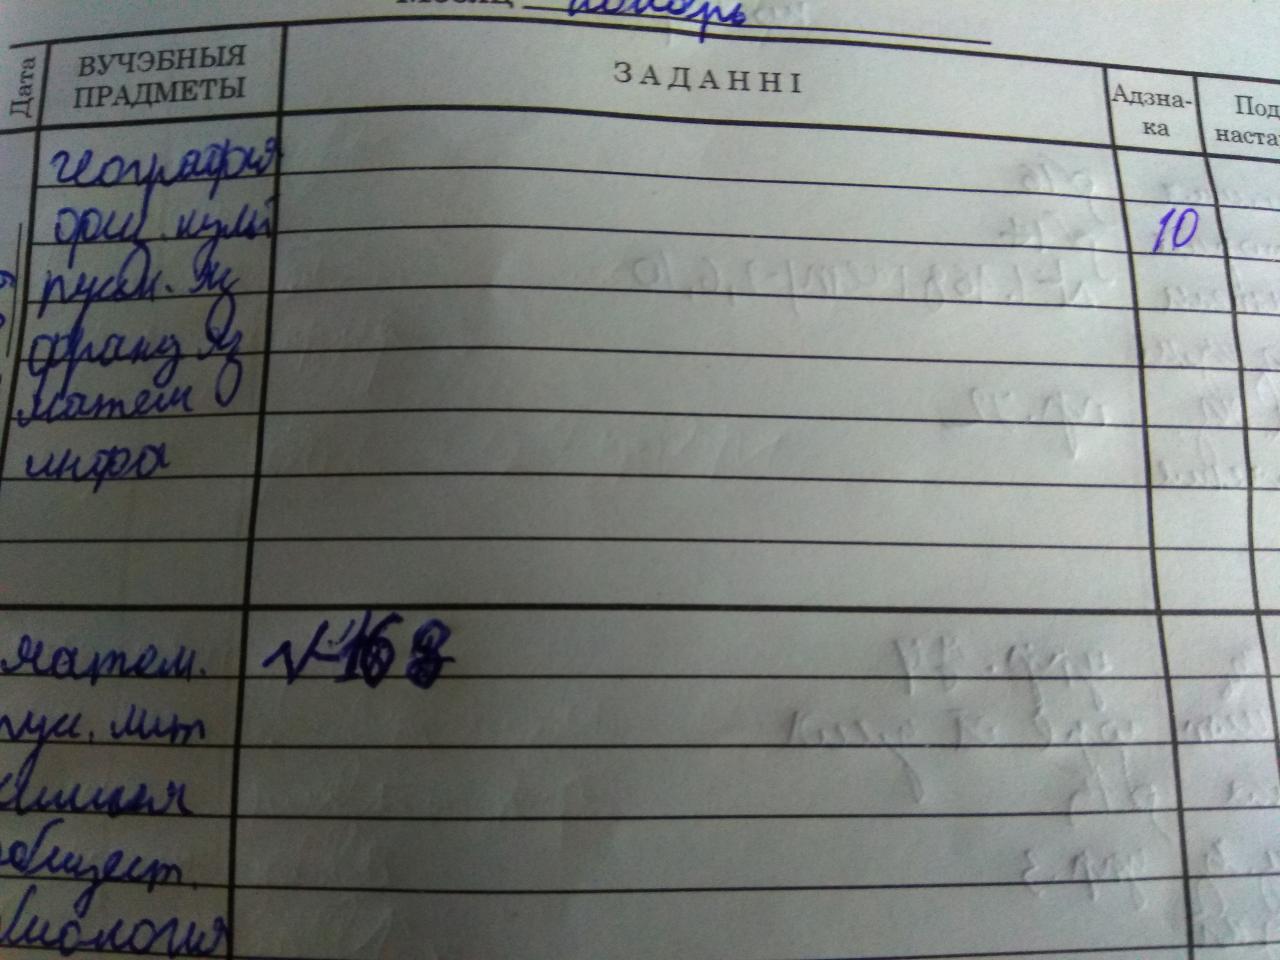 Месяц ноябрь
Дата
ВУЧЭБНЫЯ ПРАДМЕТЫ
ЗАДАННІ
Адзна-
ка
Под
наста
география
физ. культ
10
русск. яз
франц яз
матем
инфа
матем. №168
рус. лит
химия
общест.
биология